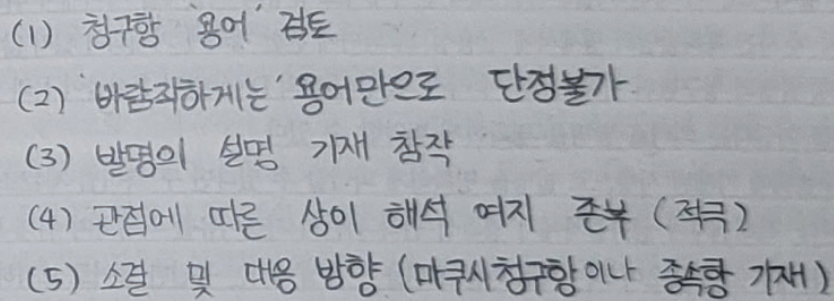 (1) 청구항 '용어' 검토
(2) '바람직하게는' 용어만으로 단정불가
(3) 발명의 설명 기재 참작
(4) 관점에 따른 상이 해석 여지 존부 (적극)
(5) 소결 및 대응 방향 (마쿠시청구항이나 종속항 기재)